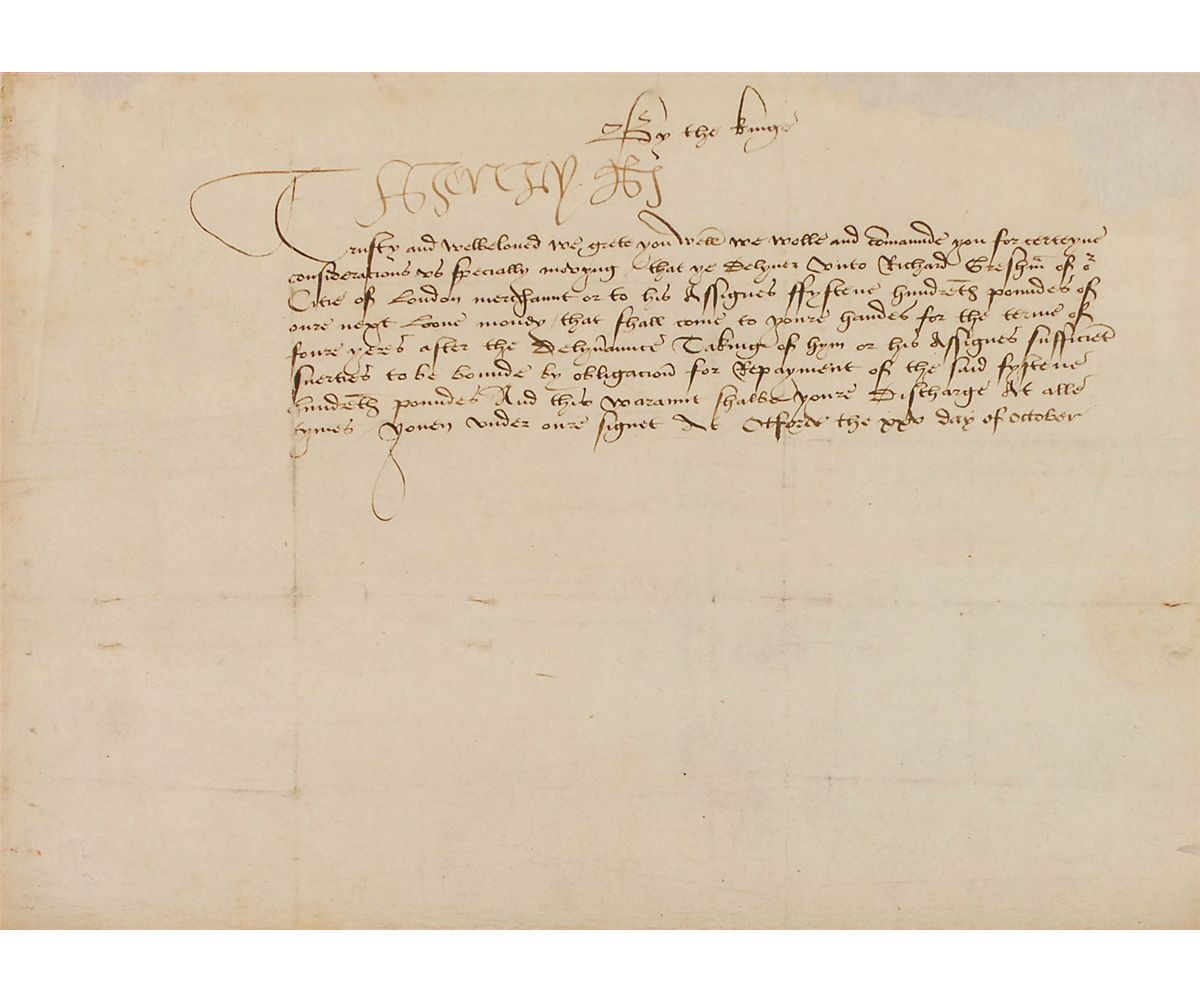 By the kinge
Henry R
Trusty and welbeloued we grete you well we wolle and comaunde you for certeyne
consideracions vs specially moving / that ye Delyuer vnto Richard Greshm of or
Citie of London merchaunt or to his Assignes ffyftene hundreth poundes of
oure next Loone money / that shall come to youre handes for the terme of
foure yeres after the Delyuaunce Taking of hym or his Assignes sufficient
suerties to be bounde by obligacion for Repayment of the said fyftene
hundreth poundes And this warannt shalbe youre Discharge At alle
tymes / youen vnder oure signet At Otford the xxv day of October